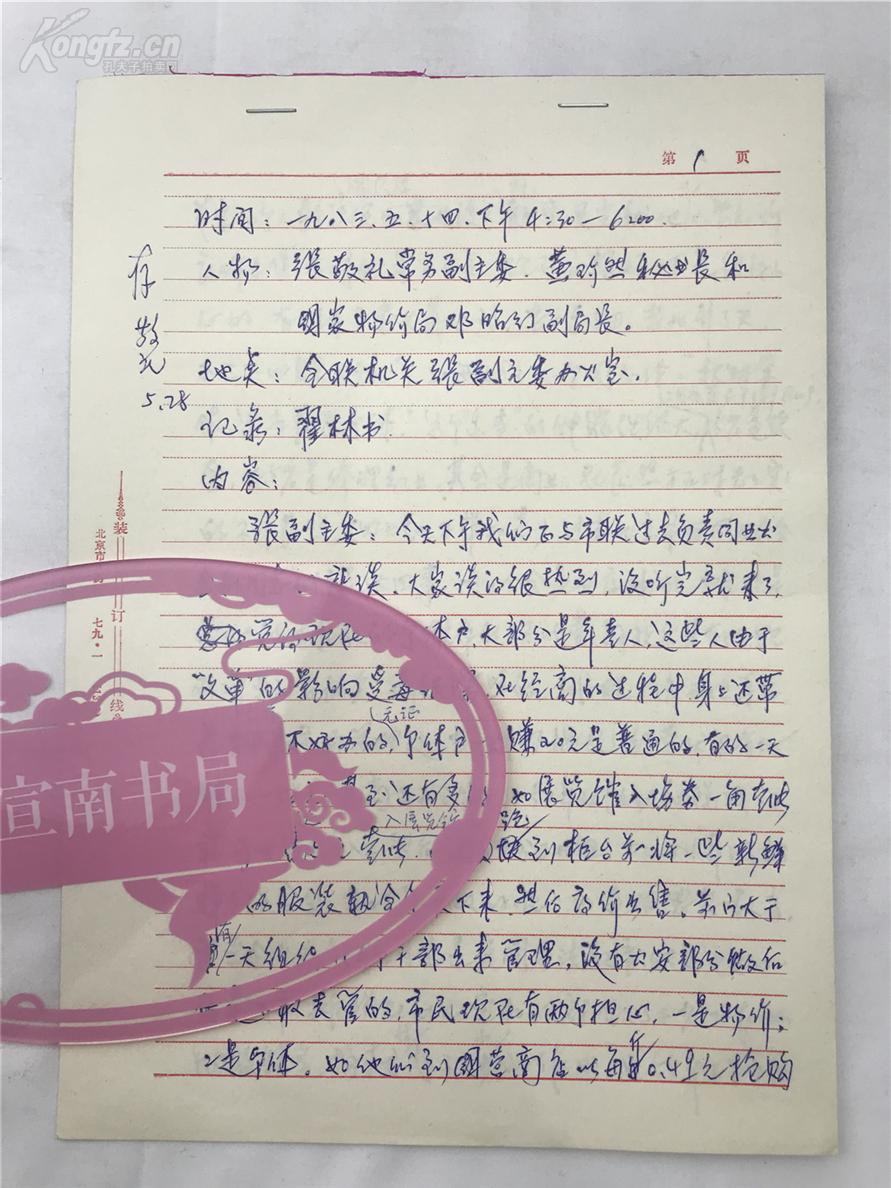 Kongfz.cn
孔夫子拍卖网
第 1 页
时间：一九八三.五.十四.下午4:30—6:00.
人物：张敬礼常务副主委.黄玠然秘书长和
国家物价局邓 副局长。
地点：全联机关张副主委办公室.
记录：翟林书.
内容：
存
敬礼
5.28
张副主委：今天下午我们正与市联过去负责同业公
谈.大家谈的很热烈,没听完就来了,
觉得现在 体户大部分是年青人,这些人由于
"文革"的影响受毒 ,在经商的过程中身上还带
不好办的(无证)个体户 赚20元是普通的.有的一天
至还有多的 如展览馆入场券一角
入展览馆 到柜台前将一些新鲜
的服装 下来,然后高价出售。前门大
有一天组织 干部出来管理,没有公安部分做后
敢去管的,市民现在有两个担心,一是物价;
2是个体。如他们到国营商店以每斤0.49元抢购
装订线
北京市
七九·一
宣南书局